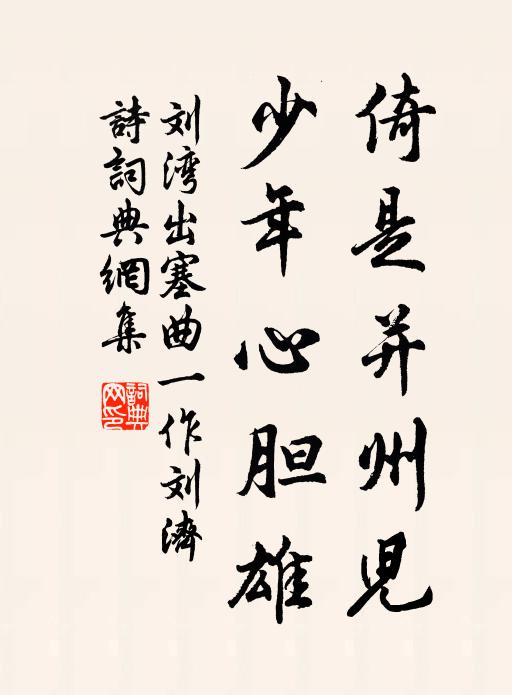 倚是并州児
少年心胆雄
刘湾出塞曲一作刘濟
詩詞典網集
詞典网印